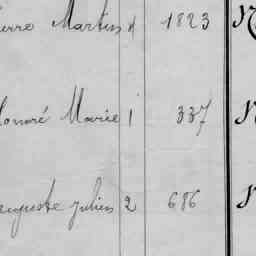 ierre Martin 4 1823 N
Honoré Marie 1 337 N
Auguste Julien 2 686 N